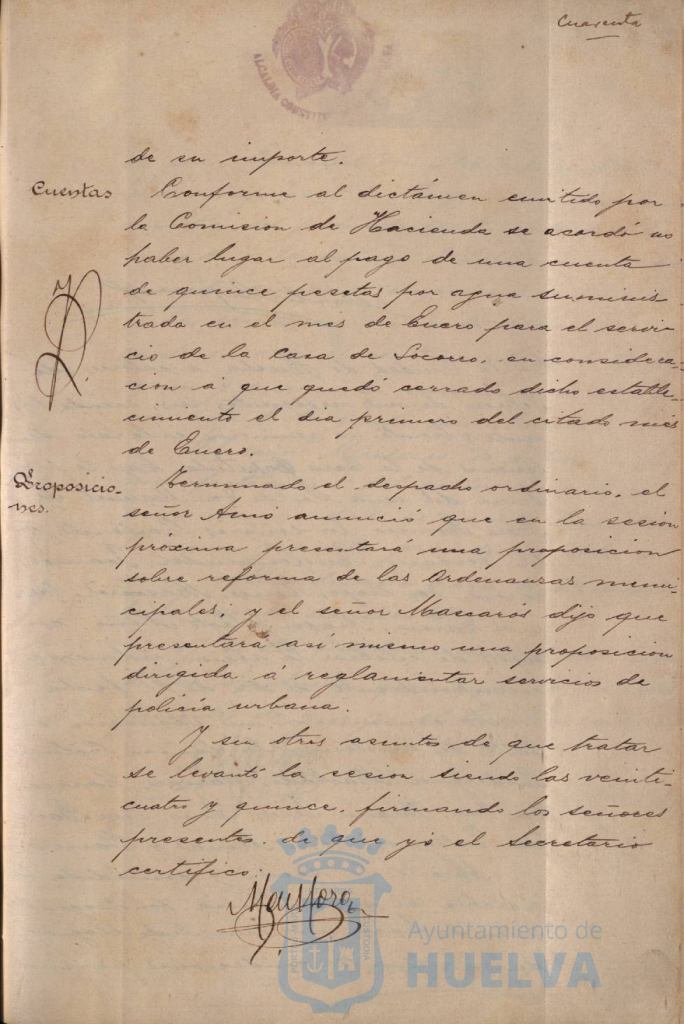 Cuarenta
ALCALDIA CONSTI
de su importe.
Cuentas
Conforme al dictámen emitido por
la Comision de Hacienda se acordó no
haber lugar al pago de una cuenta
de quince pesetas por agua suminis
trada en el mes de Enero para el servi-
cio de la Casa de Socorro, en considera-
cion á que quedó cerrado dicho estable-
cimiento el dia primero del citado mes
de Enero.
Proposicio-
nes.
Terminado el despacho ordinario, el
señor Amó anunció que en la sesion
próxima presentará una proposicion
sobre reforma de las Ordenanzas muni-
cipales; y el señor Mascarós dijo que
presentará así mismo una proposicion
dirigida á reglamentar servicios de
policía urbana.
Y sin otros asuntos de que tratar
se levantó la sesion siendo las veinti-
cuatro y quince, firmando los señores
presentes, de que yó el Secretario
certifico.
Ayuntamiento de
HUELVA